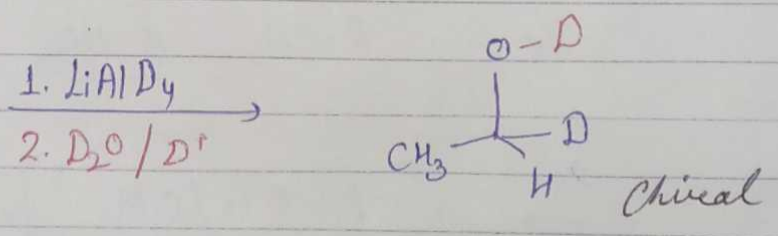 O-D
1. LiAlD4
2. D2O / D+
CH3
D
H
Chiral